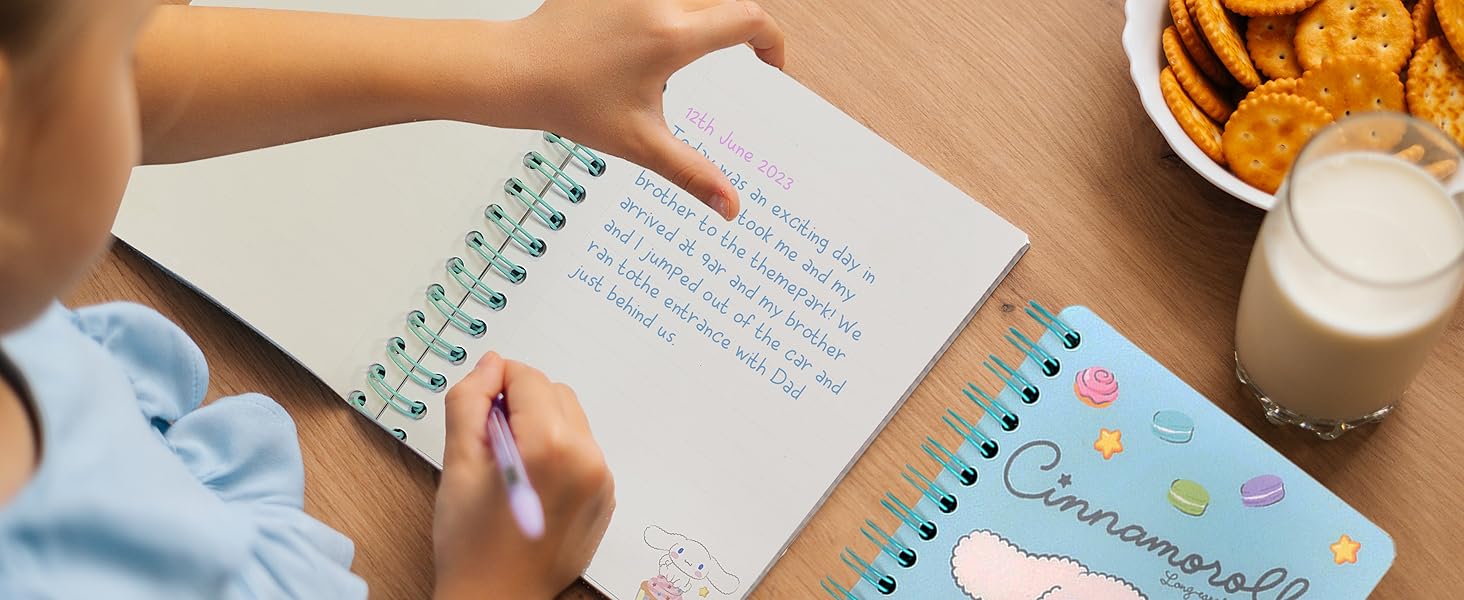 12th June 2023
Today was an exciting day in
took me and my
brother to the themepark! We
arrived at 9ar and my brother
and I jumped out of the car and
ran tothe entrance with Dad
just behind us.
Cinnamoroll